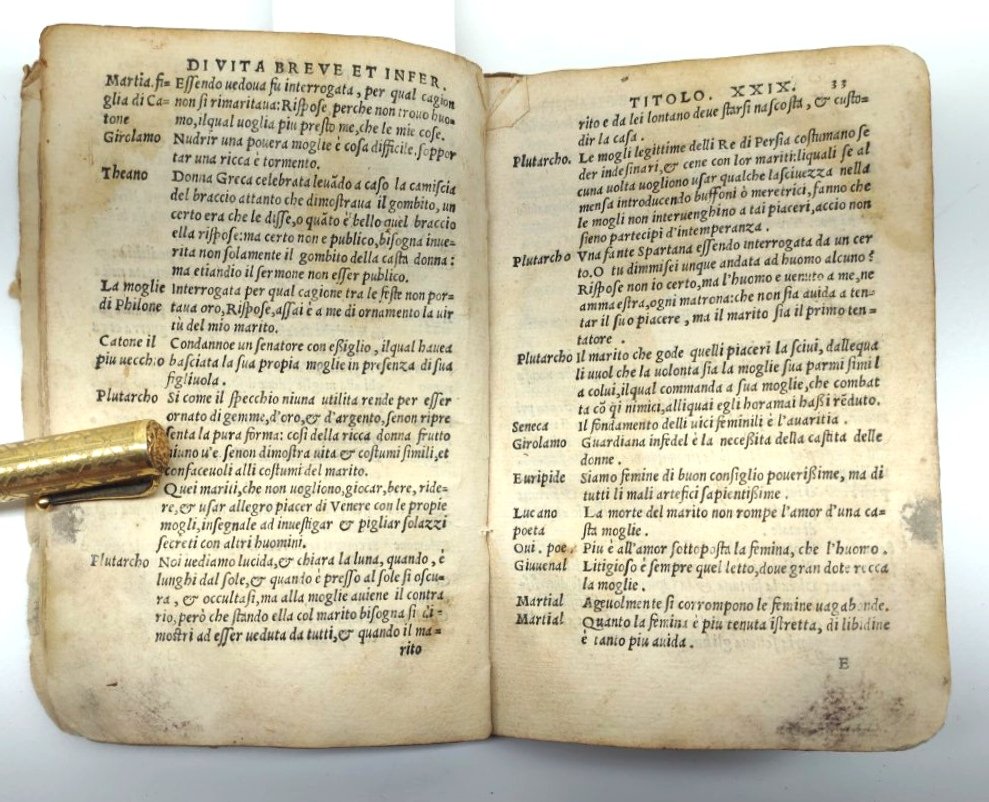 DI VITA BREVE ET INFER.
Martia.fi= Essendo uedoua fu interrogata, per qual cagion
glia di Ca= non si rimaritaua: Rispose, perche non trouo huo=
tone mo, ilqual uoglia piu presto me, che le mie cose.
Girolamo Nudrir una pouera moglie è cosa difficile, soppor
tar una ricca è tormento.
Theano Donna Greca celebrata leuãdo a caso la camiscia
del braccio attanto che dimostraua il gombito, un
certo era che le disse, o quãto è bello quel braccio
ella rispose: ma certo non e publico, bisogna inue=
rita non solamente il gombito della casta donna:
ma etiandio il sermone non esser publico.
La moglie Interrogata per qual cagione tra le feste non por=
di Philone taua oro, Rispose, assai è a me di ornamento la uir
tù del mio marito.
Catone il Condannoe un senatore con eßiglio, ilqual hauea
piu uecchio basciata la sua propia moglie in presenza di sua
figliuola.
Plutarcho Si come il specchio niuna utilita rende per esser
ornato di gemme, d'oro, & d'argento, senon ripre
senta la pura forma: cosi della ricca donna frutto
niuno u'e senon dimostra uita & costumi simili, et
confaceuoli alli costumi del marito.
Quei mariti, che non uogliono, giocar, bere, ride=
re, & usar allegro piacer di Venere con le propie
mogli, insegnale ad inuestigar & pigliar solazzi
secreti con altri huomini.
Plutarcho Noi uediamo lucida, & chiara la luna, quando, è
lunghi dal sole, & quando è presso al sole si oscu=
ra, & occultasi, ma alla moglie auiene il contra
rio, però che stando ella col marito bisogna si di=
mostri ad esser ueduta da tutti, & quando il ma=
rito
TITOLO. XXIX. 33
rito e da lei lontano deue starsi nascosta, & custo=
dir la casa.
Plutarcho. Le mogli legittime delli Re di Persia costumano se
der indesinari, & cene con lor mariti: liquali se al
cuna uolta uogliono usar qualche lasciuezza nella
mensa introducendo buffoni ò meretrici, fanno che
le mogli non interuenghino a tai piaceri, accio non
sieno partecipi d'intemperanza.
Plutarcho Vna fante Spartana essendo interrogata da un cer
to. O tu dimmi sei unque andata ad huomo alcuno?
Rispose non io certo, ma l'huomo e uenuto a me, ne
ammaestra, ogni matrona: che non sia auida a ten=
tar il suo piacere, ma il marito sia il primo ten=
tatore.
Plutarcho Il marito che gode quelli piaceri la sciui, dallequa
li uuol che la uolonta sia la moglie sua parmi simil
a colui, ilqual commanda a sua moglie, che combat
ta cõ qi nimici, alliquai egli horamai haßi rẽduto.
Seneca Il fondamento delli uici feminili è l'auaritia.
Girolamo Guardiana infedel è la neceßita della castita delle
donne.
Euripide Siamo femine di buon consiglio pouerißime, ma di
tutti li mali artefici sapientißime.
Lucano La morte del marito non rompe l'amor d'una ca=
poeta sta moglie.
Oui. poe. Piu è all'amor sottoposta la femina, che l'huomo.
Giuuenal Litigioso è sempre quel letto, doue gran dote recca
la moglie.
Martial Ageuolmente si corrompono le femine uagabonde.
Martial Quanto la femina è piu tenuta istretta, di libidine
è tanto piu auida.
E